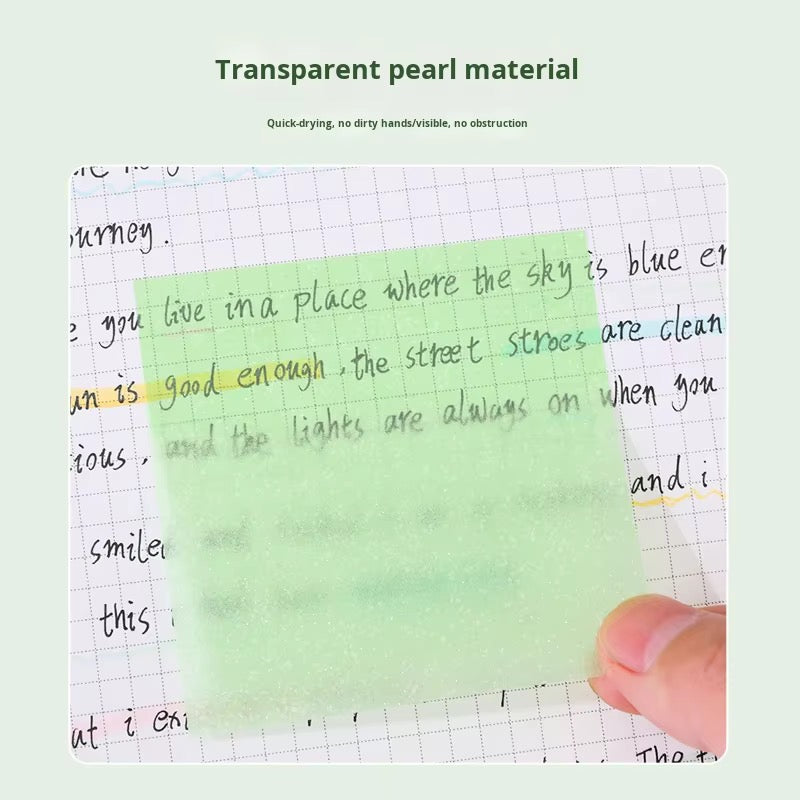 Transparent pearl material
Quick-drying, no dirty hands/visible, no obstruction
ourney.
e you live in a place where the sky is blue en
un is good enough, the street stroes are clean
ious, and the lights are always on when you
and i
smiles
this
at i exi
The